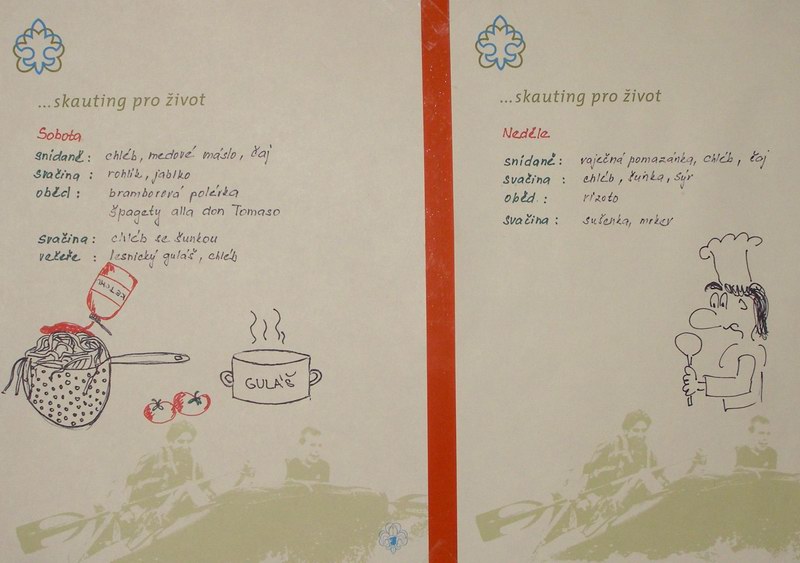 ...skauting pro život
Sobota
snídaně : chléb, medové máslo, čaj
svačina : rohlík, jablko
oběd : bramborová polévka
špagety alla don Tomaso
svačina : chléb se šunkou
večeře : lesnický guláš, chléb
KETCHUP
GULÁŠ
...skauting pro život
Neděle
snídaně : vaječná pomazánka, chléb, čaj
svačina : chléb, šunka, sýr
oběd : rizoto
svačina : sušenka, mrkev